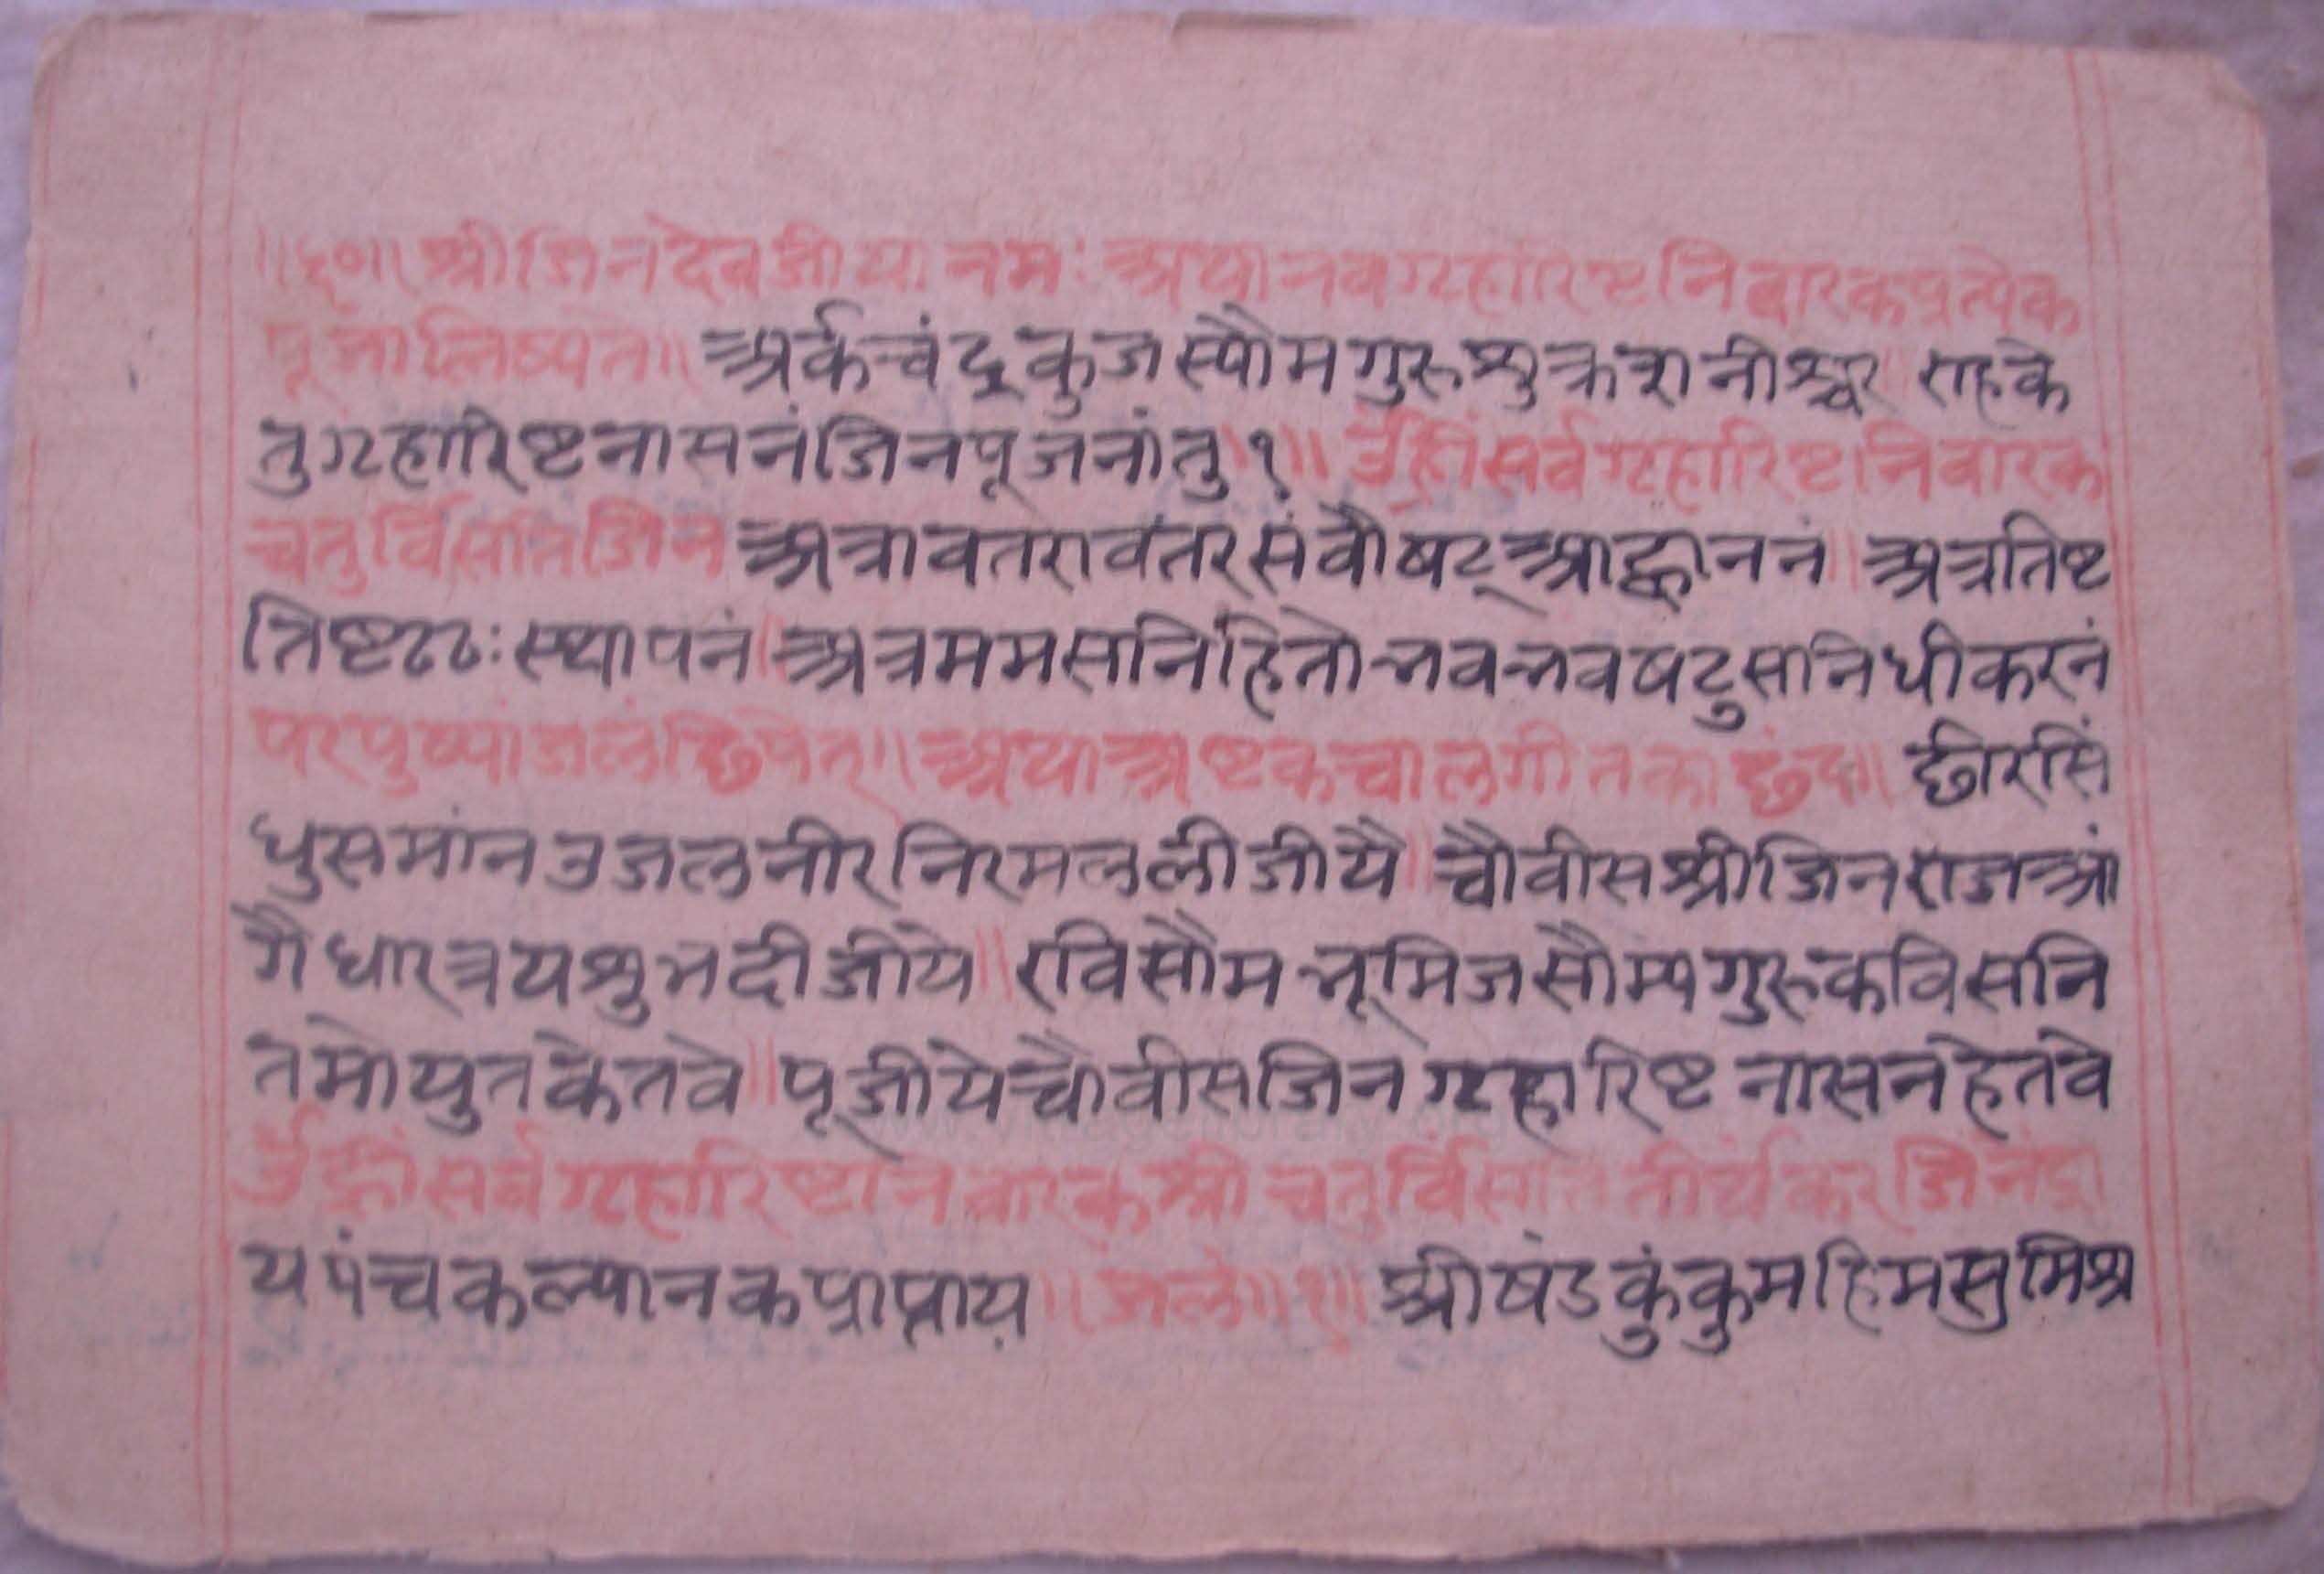 ॥६०॥ श्रीजिनदेवजीया नमः अथा नवग्रहारिष्ट निवारक प्रत्येक
पूजा लिष्यते॥ अर्क चंद्र कुज स्यौम गुरु शुक्र शनीश्चर राहके
तु ग्रहारिष्ट नासनं जिन पूजनांतु १॥ उँह्रीं सर्व ग्रहारिष्ट निवारक
चतुर्विसति जिन अत्रावतरावतर संवौषट् आह्वाननं॥ अत्र तिष्ट
तिष्ट ठठः स्थापनं॥ अत्र मम सनिहितो भव भव षटु सनिधीकरनं
पर पुष्पांजलं छिपेत्॥ अथा अष्टक चाल गीतका छंद॥ छीरसिं
धु समांन उजल नीर निरमल लीजीयै॥ चौवीस श्रीजिनराज आं
गै धार त्रय शुभ दीजीये॥ रवि सौम भूमिज सौम्य गुरु कवि सनि
तमो युत केतवे॥ पूजीये चौवीस जिन ग्रहारिष्ट नासन हेतवे
उँह्रीं सर्व ग्रहारिष्ट निवारक श्री चतुर्विसति तीर्थंकर जिनेंद्रा
य पंचकल्यानक प्राप्ताय ॥जलं॥१॥ श्रीषंड कुंकुम हिम सुमिश्र